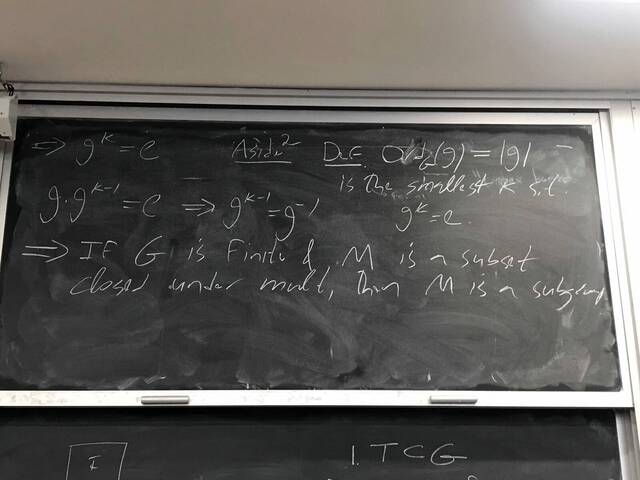 ⇒ g^k = e
Aside²
DEF. Ord_G(g) = |g|
is the smallest k s.t.
g^k = e.
g·g^{k-1} = e ⇒ g^{k-1} = g^{-1}
⇒ IF G is Finite & M is a subset
closed under mult, then M is a subgroup
I
1. TCG